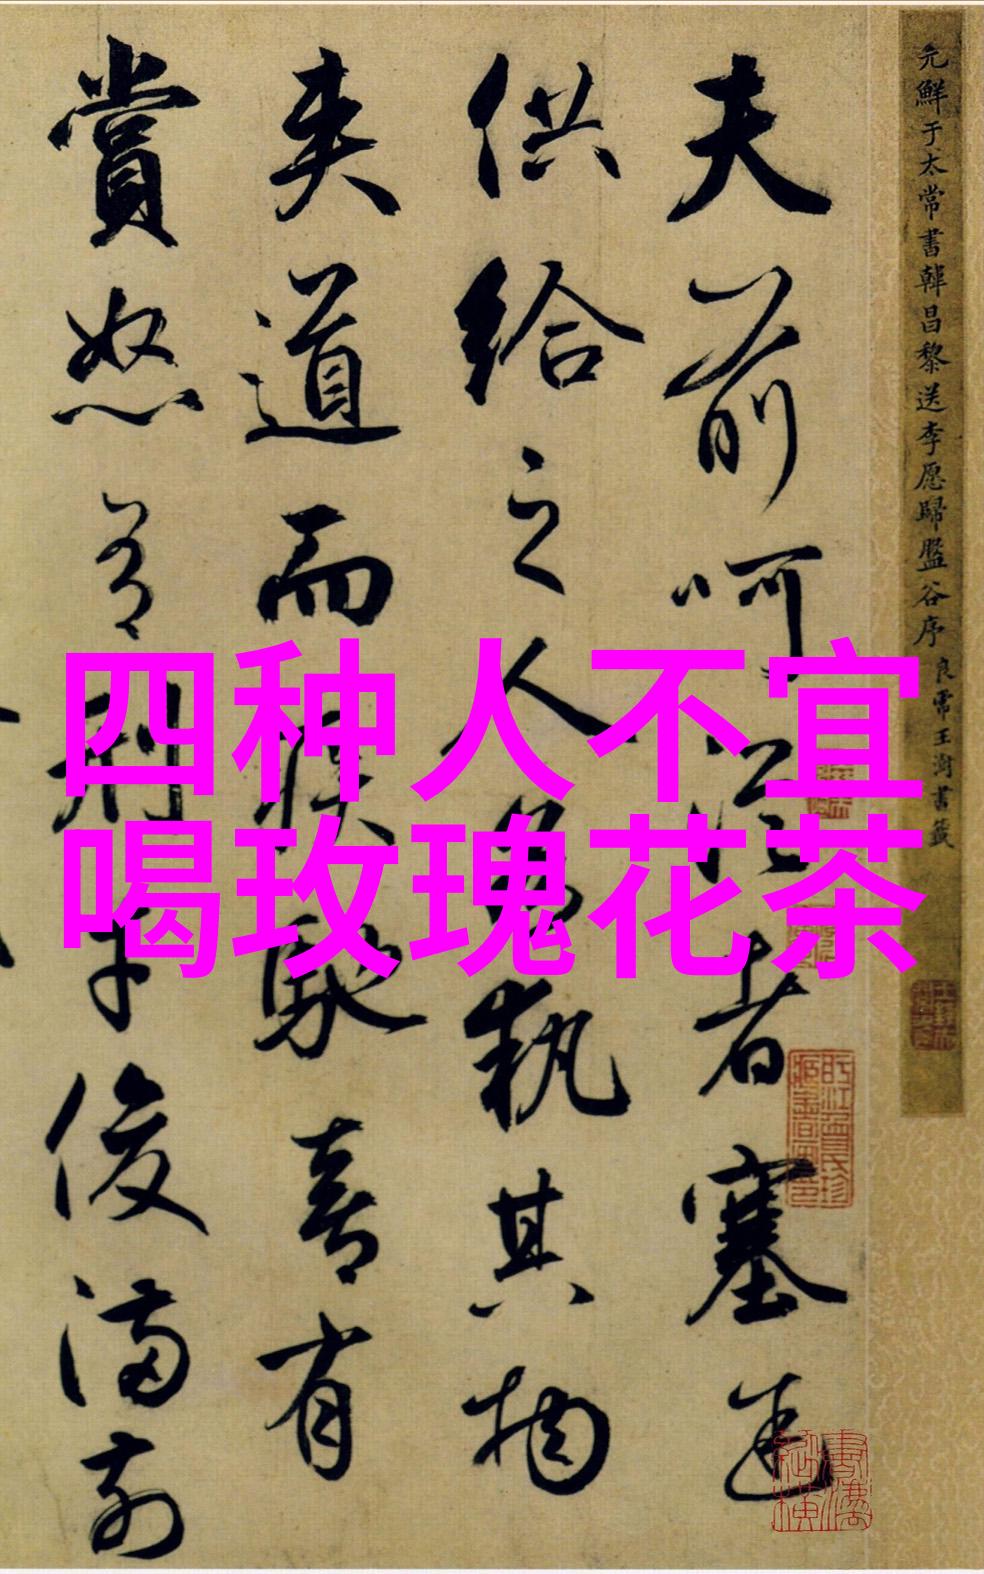 元鮮于太常書韓昌黎送李愿歸盤谷序 良常王澍書籤
夫前呵從者塞途
供給之人各執其物
夾道而疾馳喜有
賞怒有刑才俊滿前
四种人不宜
喝玫瑰花茶